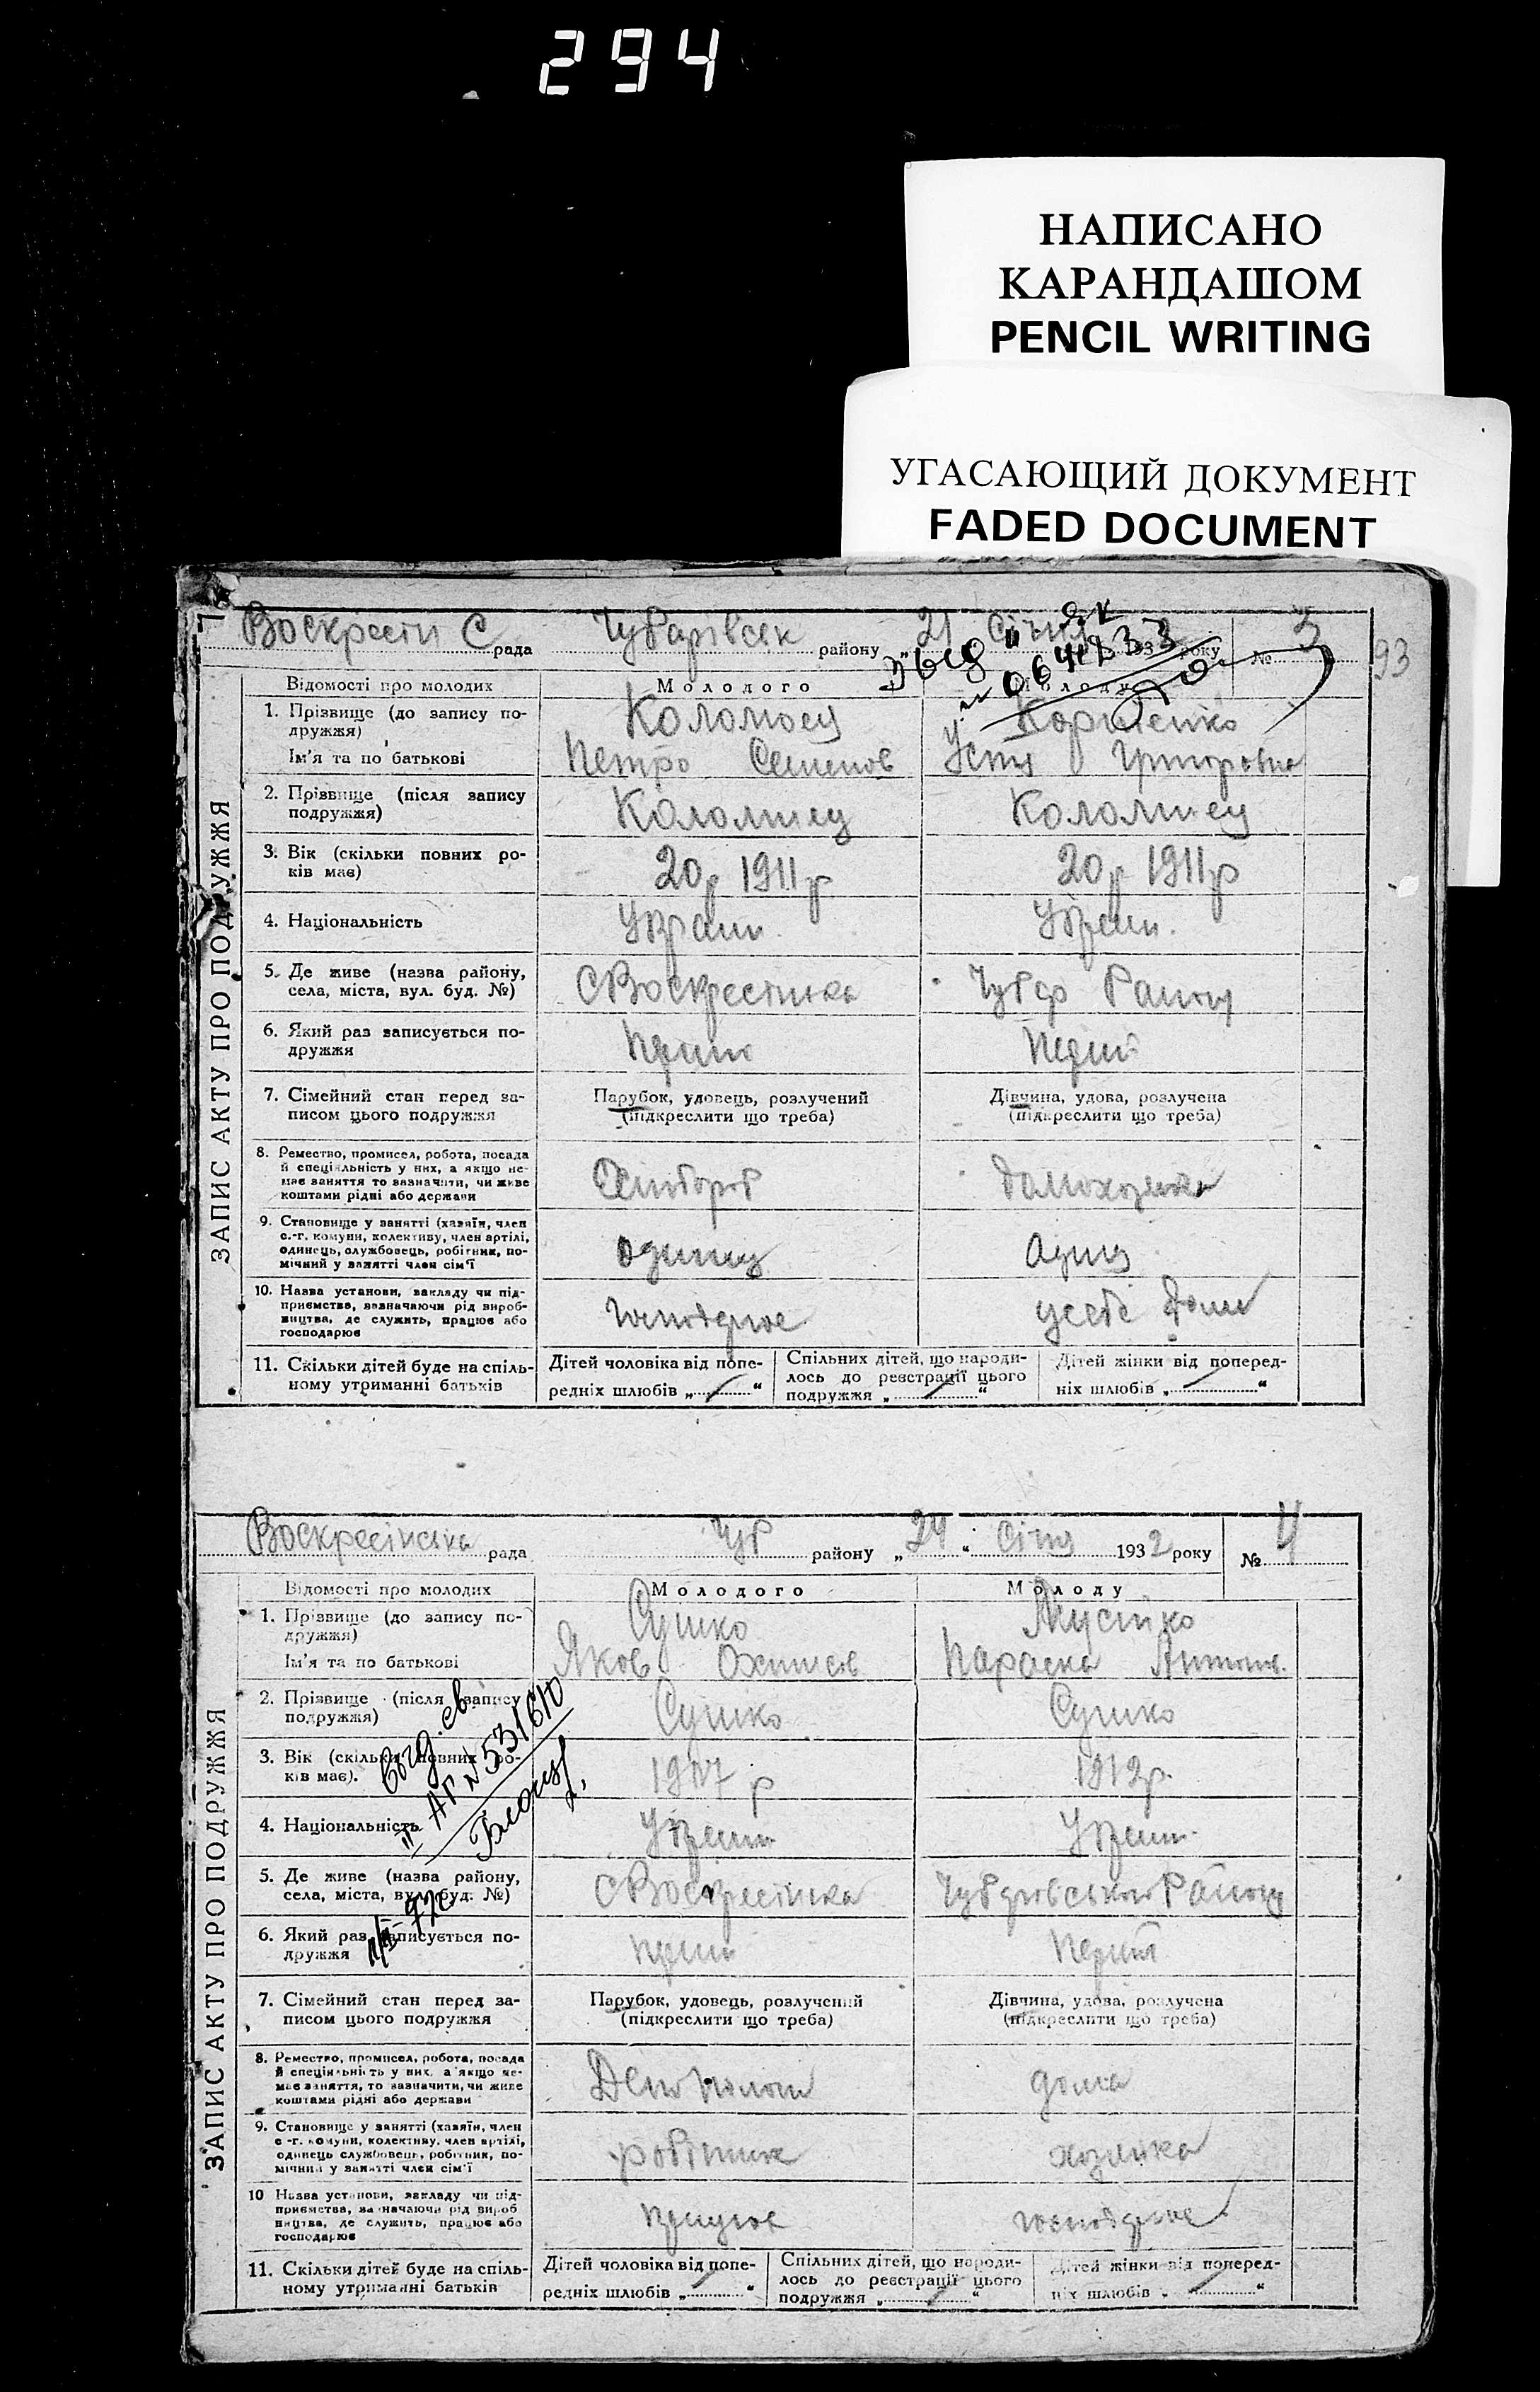 294
НАПИСАНО
КАРАНДАШОМ
PENCIL WRITING
УГАСАЮЩИЙ ДОКУМЕНТ
FADED DOCUMENT
93
ЗАПИС АКТУ ПРО ПОДРУЖЖЯ
Воскресен С рада Чубарівськ району „21 Січня 193 року № 3
Відомості про молодих Молодого Молоду
1. Прізвище (до запису по-
дружжя) Коломоец Корниенко
Ім'я та по батькові Петро Семенов Устя Григоровна
2. Прізвище (після запису
подружжя) Коломиец Коломиец
3. Вік (скільки повних ро-
ків має) 20 р 1911 р 20 р 1911 р
4. Національність Украин. Украин.
5. Де живе (назва району,
села, міста, вул. буд. №) С Воскресінка Чубар Район
6. Який раз записується по-
дружжя
7. Сімейний стан перед за-
писом цього подружжя
Парубок, удовець, розлучений
(підкреслити що треба)
Дівчина, удова, розлучена
(підкреслити що треба)
8. Ремество, промисел, робота, посада
й спеціяльність у них, а якщо не-
має заняття то зазначити, чи живе
коштами рідні або держави
Домохозяйка
9. Становище у занятті (хазяїн, член
с.-г. комуни, колективу, член артілі,
одинець, службовець, робітник, по-
мічний у занятті член сім'ї
одинец
10. Назва установи, закладу чи під-
приємства, зазначаючи рід вироб-
ництва, де служить, працює або
господарює
господарює усебе дома
11. Скільки дітей буде на спіль-
ному утриманні батьків
Дітей чоловіка від попе-
редніх шлюбів „ “
Спільних дітей, що народи-
лось до реєстрації цього
подружжя „ “
Дітей жінки від поперед-
ніх шлюбів „ “
ЗАПИС АКТУ ПРО ПОДРУЖЖЯ
Воскресінська рада Чуб району „24“ Січня 1932 року № 4
Відомості про молодих Молодого Молоду
1. Прізвище (до запису по-
дружжя) Сушко Мусійко
Ім'я та по батькові Яков Параска Антонів.
2. Прізвище (після запису
подружжя) Сушко Сушко
3. Вік (скільки повних ро-
ків має). 1907 р 1912 р.
4. Національність Украин Украин.
5. Де живе (назва району,
села, міста, вул. буд. №) С Воскресінка Чубарівського Району
6. Який раз записується по-
дружжя
7. Сімейний стан перед за-
писом цього подружжя
Парубок, удовець, розлучений
(підкреслити що треба)
Дівчина, удова, розлучена
(підкреслити що треба)
8. Ремество, промисел, робота, посада
й спеціяльність у них, а якщо не-
має заняття, то зазначити, чи живе
коштами рідні або держави
дома
9. Становище у занятті (хазяїн, член
с -г. комуни, колективу, член артілі,
одинець службовець, робітник, по-
мічний у занятті член сім'ї
робітник хозяйка
10 Назва установи, закладу чи під-
приємства, зазначаючи рід вироб
ництва, де служить, працює або
господарює
працює господарює
11. Скільки дітей буде на спіль-
ному утриманні батьків
Дітей чоловіка від попе-
редніх шлюбів „ “
Спільних дітей, що народи-
лось до реєстрації цього
подружжя „ “
Дітей жінки від поперед-
ніх шлюбів „ “